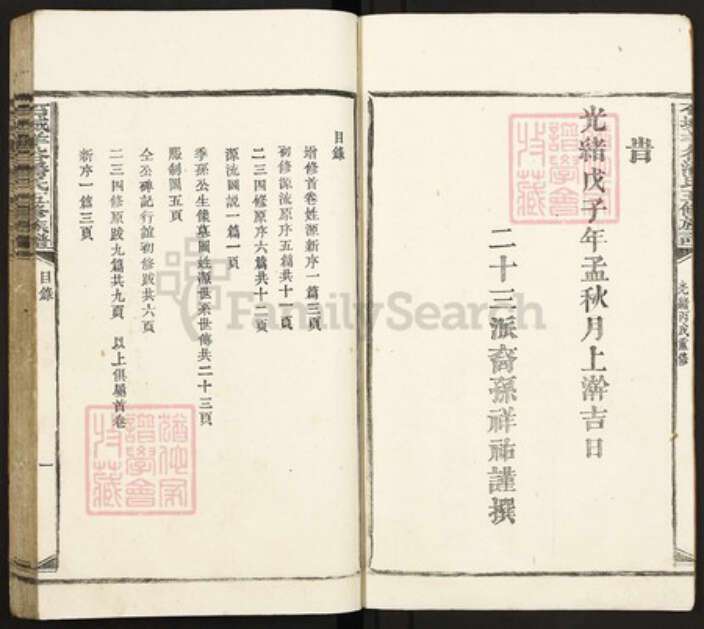 旹
光緒戊子年孟秋月上澣吉日
二十三派裔孫祥祐謹撰
光緒丙戌重修
目錄
增修首卷姓源新序一篇三頁
初修源流原序五篇共十一頁
二三四修原序六篇共十二頁
源流圖説一篇一頁
季孫公生像墓圖姓源世系世傳共二十三頁
服制圖五頁
仝公碑記行誼初修跋共六頁
二三四修原跋九篇共九頁 以上俱屬首卷
新序一篇三頁
目錄
一
譜學會
收藏
譜學會
收藏
FamilySearch